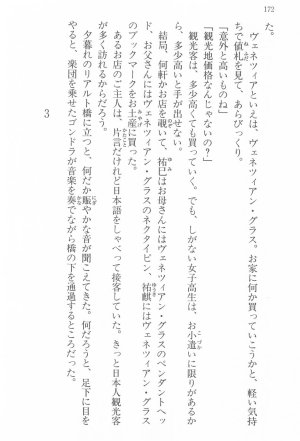 172
た。
　ヴェネツィアといえば、ヴェネツィアン・グラス。お家に何か買っていこうかと、軽い気持
ちで値札を見て、あらびっくり。
「意外と高いものね」
「観光地価格なんじゃないの？」
　観光客は、多少高くても買っていく。でも、しがない女子高生は、お小遣いに限りがあるか
ら、多少高いと手が出せない。
　結局、何軒かお店を覗いて、祐巳はお母さんにはヴェネツィアン・グラスのペンダントヘッ
ド、お父さんにはヴェネツィアン・グラスのネクタイピン、祐麒にはヴェネツィアン・グラス
のブックマークをお土産に買った。
　あるお店のご主人は、片言だけれど日本語をしゃべって接客していた。きっと日本人観光客
が多く訪れるからだろう。
3
　夕暮れのリアルト橋に立つと、何だか賑やかな音が聞こえてきた。何だろうと、足下に目を
やると、楽団を乗せたゴンドラが音楽を奏でながら橋の下を通過するところだった。